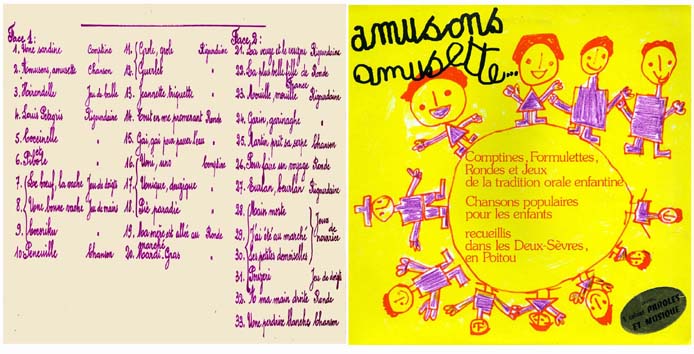 Face 1:
1. Une sardine Comptine
2. Amusons, amusette Chanson
3. Hirondelle Jeu de balle
4. Louis Péteigris Rigourdaine
5. Coccinelle "
6. Pibole "
7. Le bœuf, la vache Jeu de doigts
8. Une bonne vache Jeu de mains
9. "
10. Peneuille Chanson
11. Grole, grole Rigourdaine
12. Guerlet "
13. Jeannette triquette "
14. Tout en me promenant Ronde
15. Gai, gai pour passer l'eau "
16. Uni, uno Comptine
17. Unique, druzique "
18. Pié paradis "
19. Ma mère est allée au marché Ronde
20. Mardi-Gras "
Face 2:
21. La rouge et la Rigourdaine
22. La plus belle fille de France Ronde
23. Mouille, mouille Rigourdaine
24. Garin, garinaghe "
25. Martin prit sa serpe Chanson
26. Pour faire un voyage Ronde
27. Burlan, burlan Rigourdaine
28. Main morte
29. J'ai été au marché
30. Les petites demoiselles
Jeux de nourrice
31. Jeu de doigts
32. A ma main droite Ronde
33. Une perdrix blanche Chanson
amusons
amusette...
Comptines, Formulettes,
Rondes et Jeux
de la tradition orale enfantine
Chansons populaires
pour les enfants
recueillis
dans les Deux-Sèvres,
en Poitou
PAROLES
ET MUSIQUE